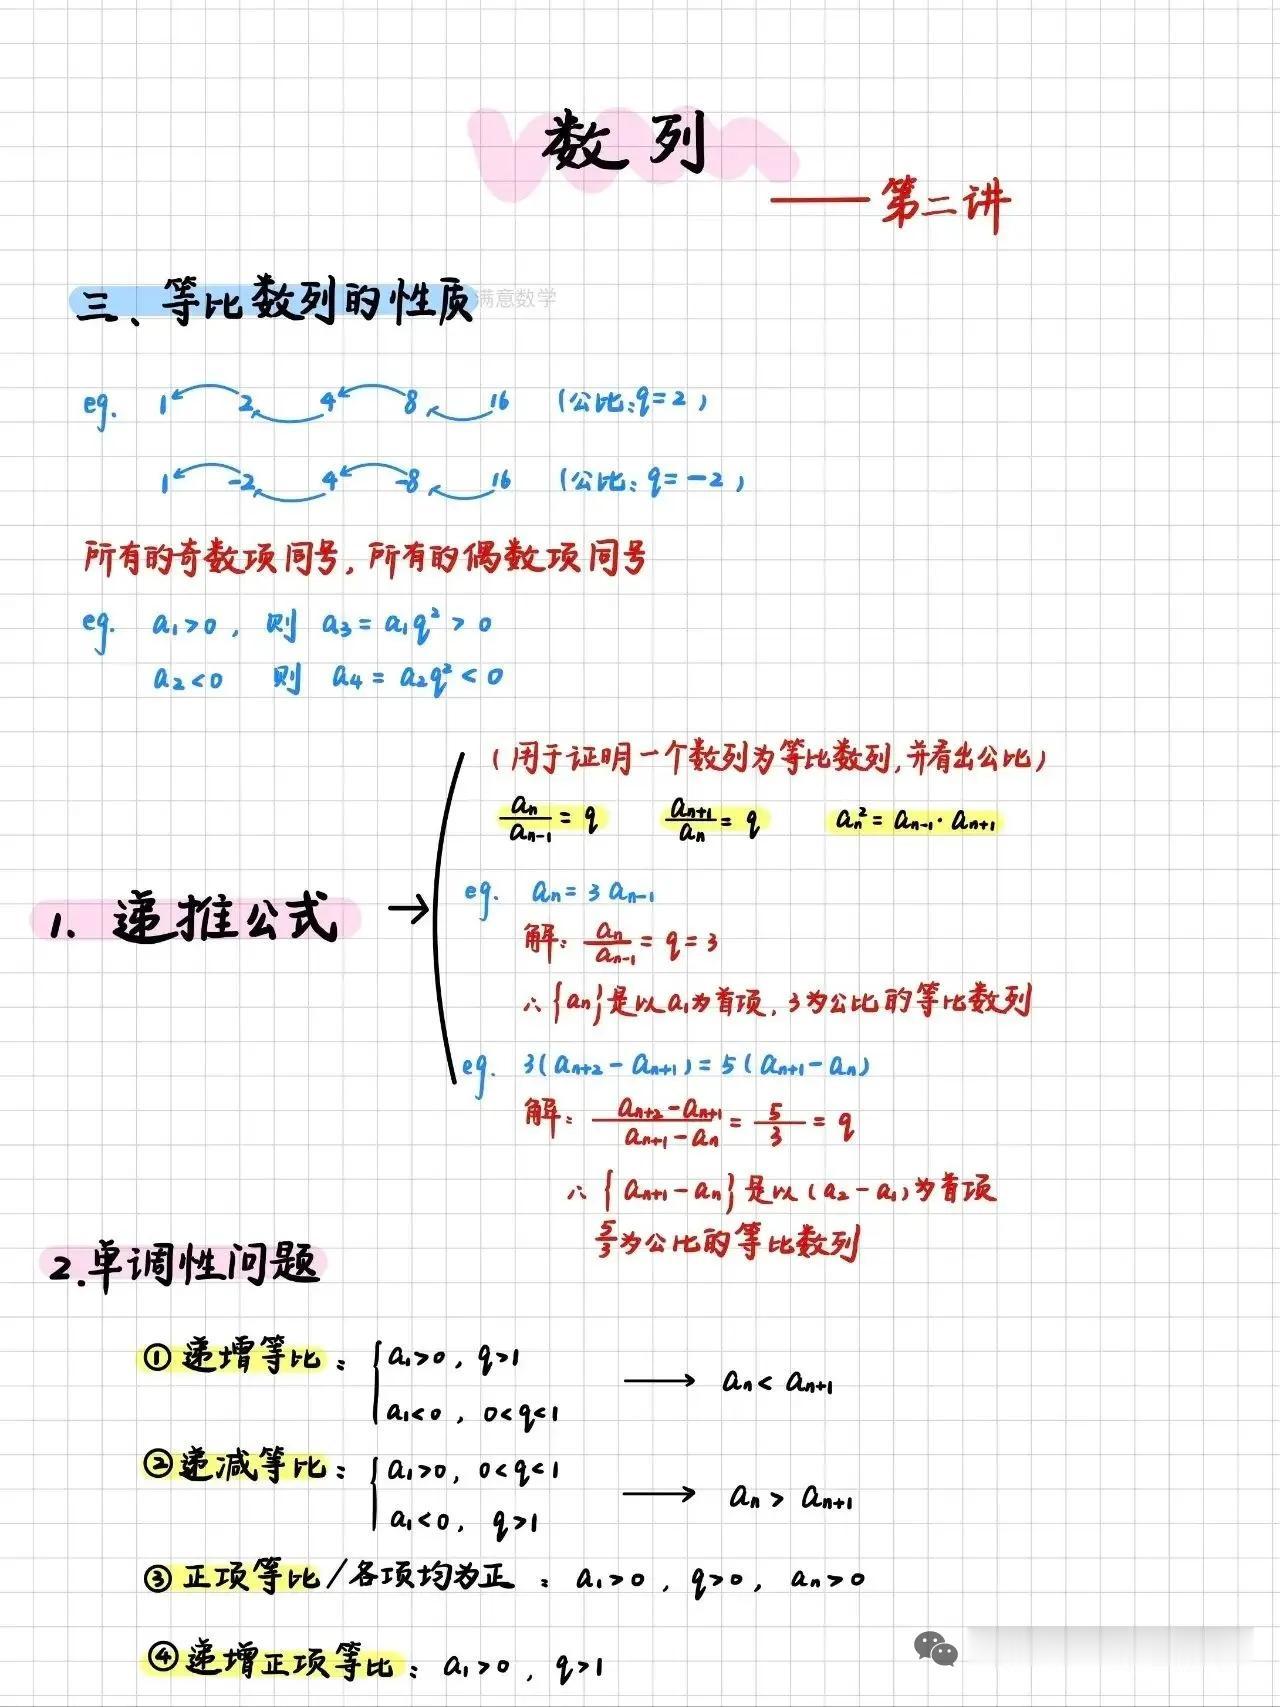 数列
——第二讲
三、等比数列的性质
满意数学
eg. 1 2 4 8 16 (公比:q=2)
1 -2 4 -8 16 (公比:q=-2)
所有的奇数项同号,所有的偶数项同号
eg. a₁>0, 则 a₃=a₁q²>0
a₂<0 则 a₄=a₂q²<0
(用于证明一个数列为等比数列,并看出公比)
aₙ/aₙ₋₁=q aₙ₊₁/aₙ=q aₙ²=aₙ₋₁·aₙ₊₁
1. 递推公式 →
eg. aₙ=3aₙ₋₁
解: aₙ/aₙ₋₁=q=3
∴{aₙ}是以a₁为首项,3为公比的等比数列
eg. 3(aₙ₊₂-aₙ₊₁)=5(aₙ₊₁-aₙ)
解: (aₙ₊₂-aₙ₊₁)/(aₙ₊₁-aₙ)=5/3=q
∴{aₙ₊₁-aₙ}是以(a₂-a₁)为首项
5/3为公比的等比数列
2.单调性问题
①递增等比: { a₁>0, q>1
a₁<0, 0<q<1
→ aₙ<aₙ₊₁
②递减等比: { a₁>0, 0<q<1
a₁<0, q>1
→ aₙ>aₙ₊₁
③正项等比/各项均为正: a₁>0, q>0, aₙ>0
④递增正项等比: a₁>0, q>1